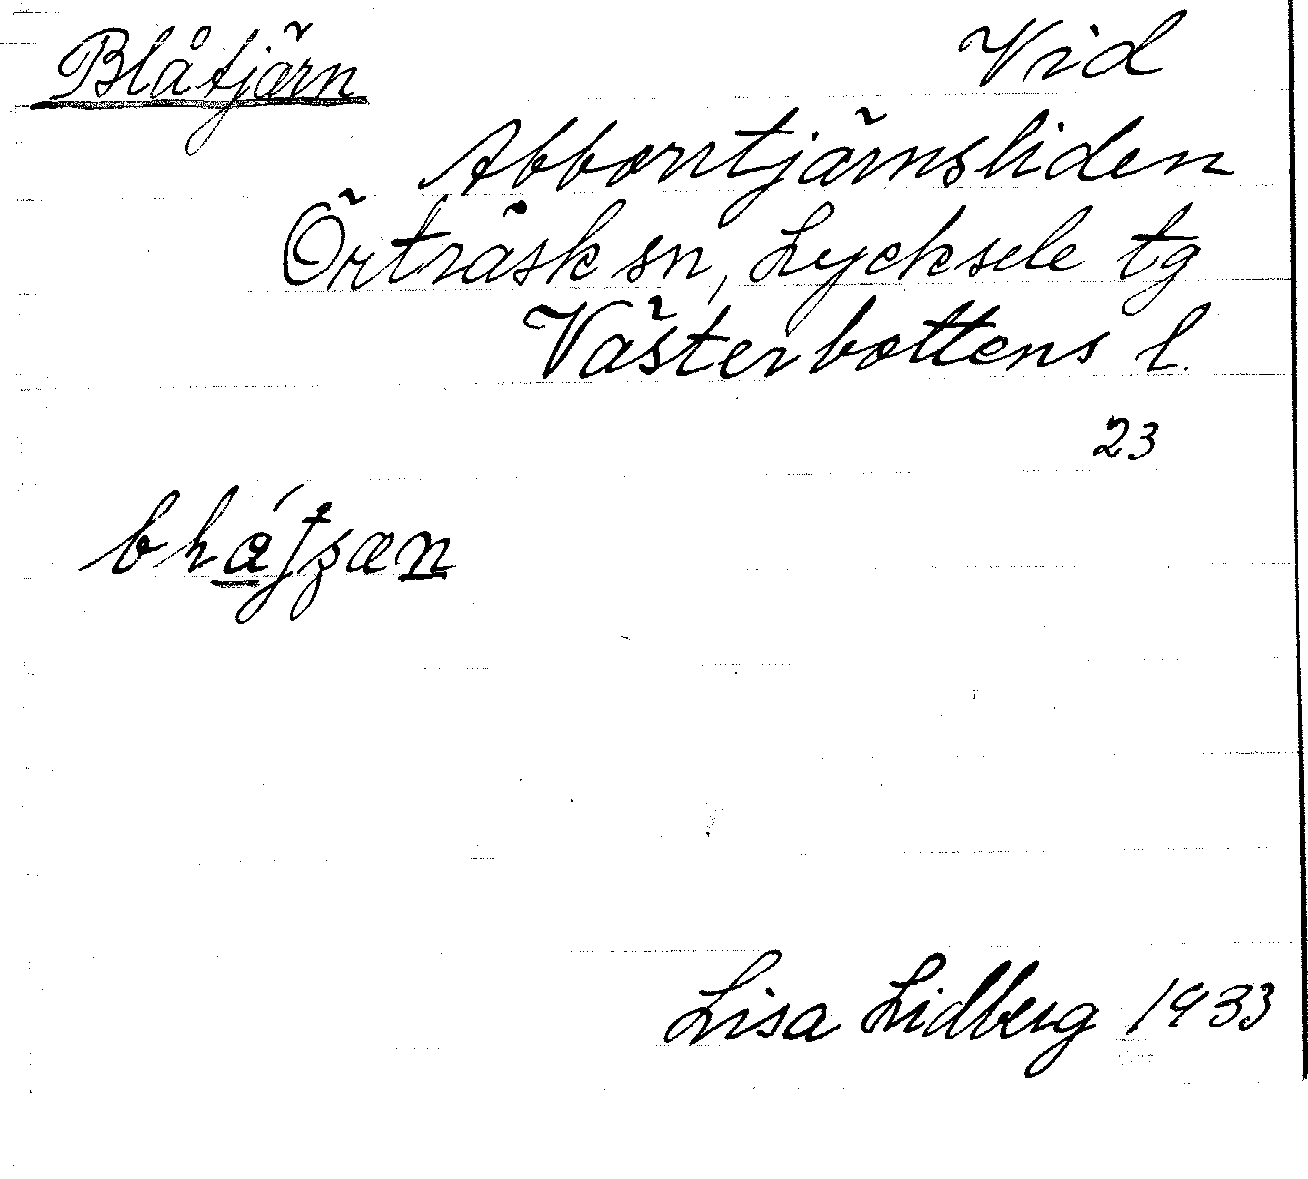 Blåtjärn
Vid
Abborrtjärnsliden
Örträsk sn, Lycksele tg
Västerbottens l.
23
Lisa Lidberg 1933